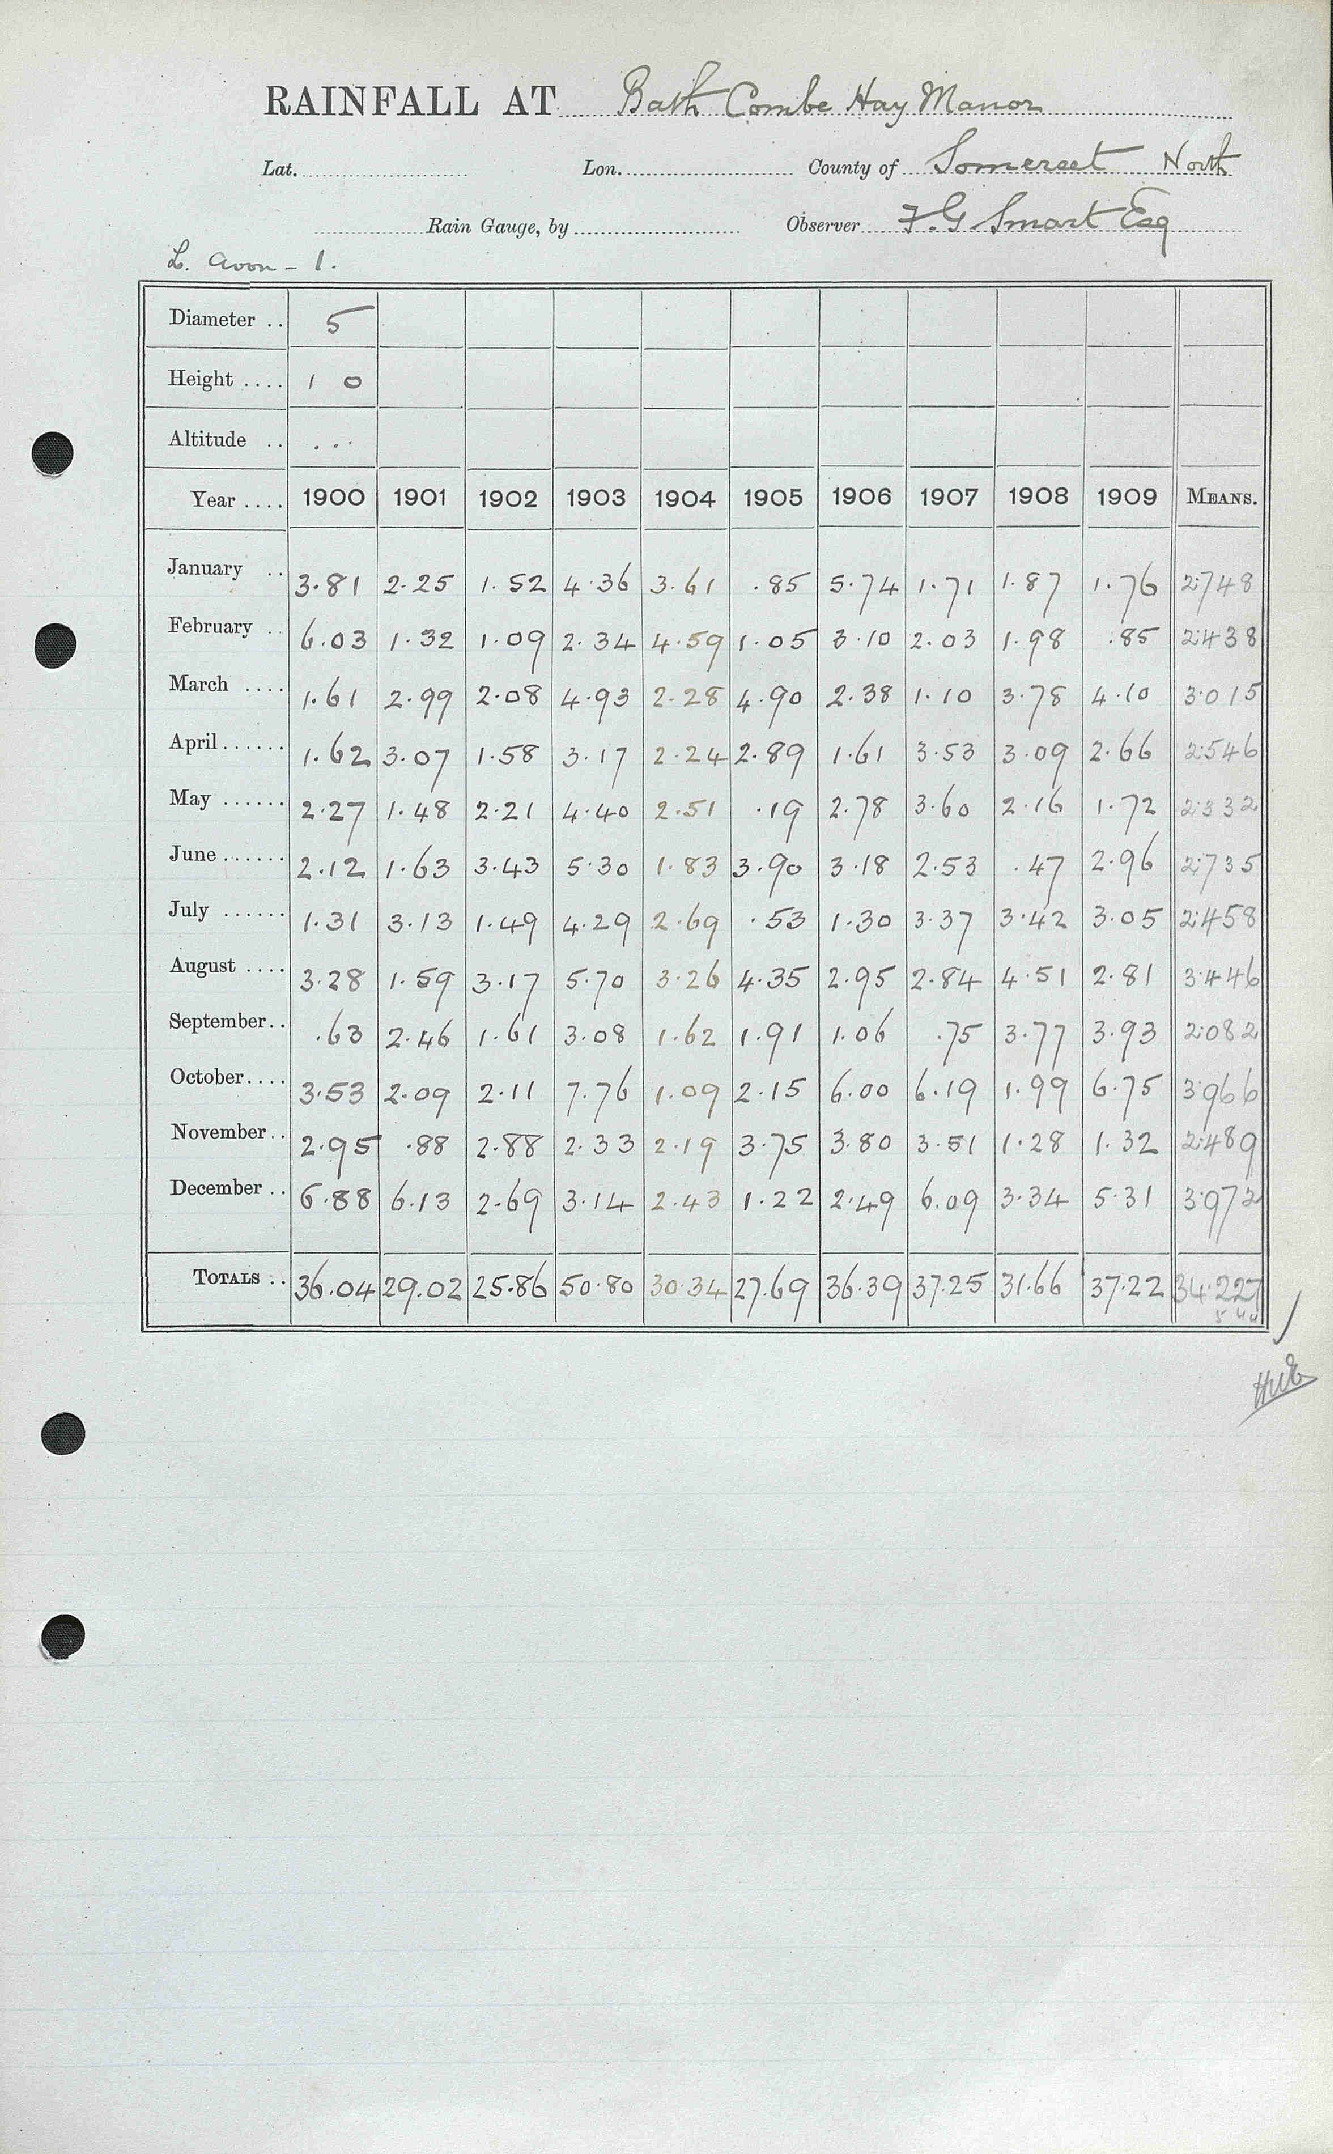 RAINFALL AT Bath Combe Hay Manor
Lat. Lon. County of Somerset North
Rain Gauge, by Observer F.G Smart Esq
L. Avon - 1.
Diameter .. 5
Height .... 1 0
Altitude .. ...
Year .... 1900 1901 1902 1903 1904 1905 1906 1907 1908 1909 MEANS.
January .. 3.81 2.25 1.52 4.36 3.61 .85 5.74 1.71 1.87 1.76 2.748
February .. 6.03 1.32 1.09 2.34 4.59 1.05 3.10 2.03 1.98 .85 2.438
March .... 1.61 2.99 2.08 4.93 2.28 4.90 2.38 1.10 3.78 4.10 3.015
April ...... 1.62 3.07 1.58 3.17 2.24 2.89 1.61 3.53 3.09 2.66 2.546
May ...... 2.27 1.48 2.21 4.40 2.51 .19 2.78 3.60 2.16 1.72 2.332
June ...... 2.12 1.63 3.43 5.30 1.83 3.90 3.18 2.53 .47 2.96 2.735
July ...... 1.31 3.13 1.49 4.29 2.69 .53 1.30 3.37 3.42 3.05 2.458
August .... 3.28 1.59 3.17 5.70 3.26 4.35 2.95 2.84 4.51 2.81 3.446
September .. .63 2.46 1.61 3.08 1.62 1.91 1.06 .75 3.77 3.93 2.082
October .... 3.53 2.09 2.11 7.76 1.09 2.15 6.00 6.19 1.99 6.75 3.966
November .. 2.95 .88 2.88 2.33 2.19 3.75 3.80 3.51 1.28 1.32 2.489
December .. 6.88 6.13 2.69 3.14 2.43 1.22 2.49 6.09 3.34 5.31 3.972
TOTALS .. 36.04 29.02 25.86 50.80 30.34 27.69 36.39 37.25 31.66 37.22 34.227